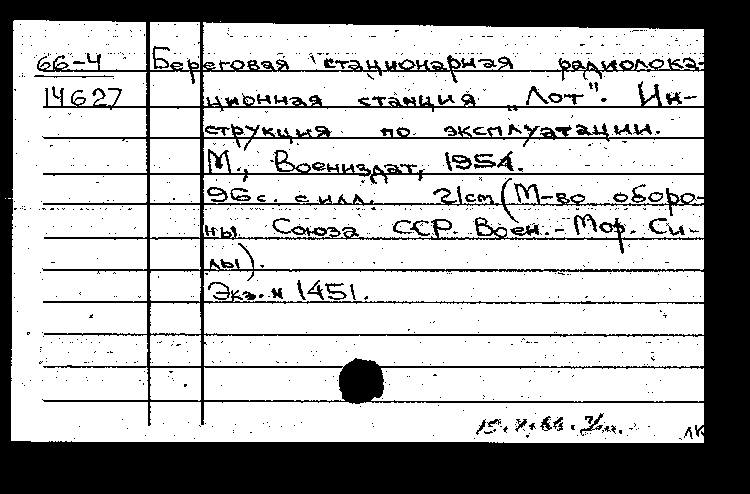 66-4 Береговая стационарная радиолока-
14627 ционная станция „Лот". Ин-
струкция по эксплуатации.
М., Воениздат, 1954.
96с. с илл. 21cm (М-во оборо-
ны Союза ССР. Воен.-Мор. Си-
лы).
Экз. № 1451.
лк